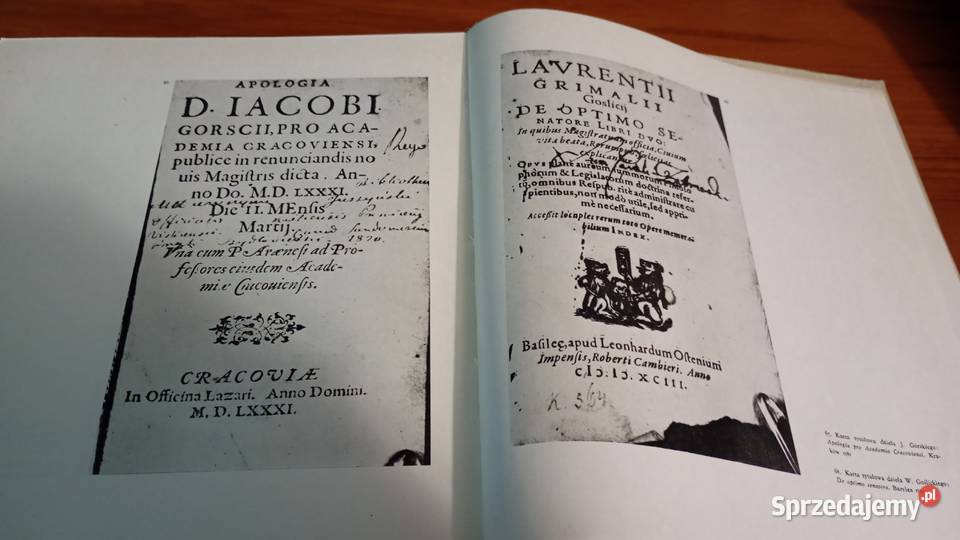 APOLOGIA
D. IACOBI
GORSCII, PRO ACA-
DEMIA CRACOVIENSI,
publice in renunciandis no
uis Magistris dicta. An-
no Do. M. D. LXXXI.
Die II. MEnsis
Martij.
1820.
Vna cum P. Arænesi ad Pro-
feßores eiusdem Acade-
miæ Cracouiensis.
CRACOVIÆ
In Officina Lazari. Anno Domini.
M. D. LXXXI.
LAVRENTII
GRIMALII
Goslicij
DE OPTIMO SE-
NATORE LIBRI DVO:
In quibus Magistratuum officia, Ciuium
vita beata, Rerumpub. fœlicitas
explicantur
Opus planè aureum, summorum Philoso
phorum & Legislatorum doctrina refer-
tū, omnibus Respub. ritè administrare cu
pientibus, non modò vtile, sed apprì-
mè necessarium.
Accessit locuples rerum toto Opere memora
bilium INDEX.
Basileę, apud Leonhardum Ostenium
Impensis, Roberti Cambieri. Anno
CIↃ. IↃ. XCIII.
K. 564
65. Karta tytułowa dzieła J. Górskiego:
Apologia pro Academia Cracoviensi. Kra-
ków
66. Karta tytułowa dzieła W. Goślickiego:
De optimo senatore. Bazylea
Sprzedajemy.pl